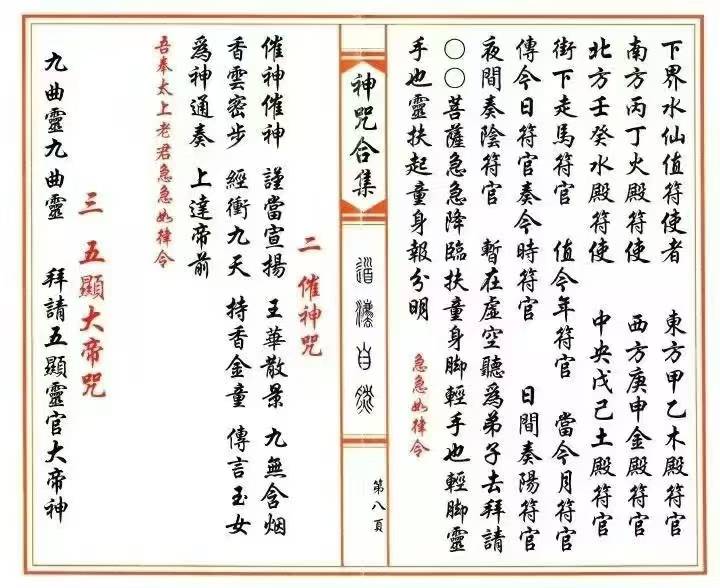 下界水仙值符使者　東方甲乙木殿符官
南方丙丁火殿符使　西方庚申金殿符官
北方壬癸水殿符使　中央戊己土殿符官
街下走馬符官　值今年符官　當今月符官
傳今日符官奏今時符官　日間奏陽符官
夜間奏陰符官　暫在虛空聽爲弟子去拜請
○○菩薩急急降臨扶童身脚輕手也輕脚靈
手也靈扶起童身報分明　急急如律令
神咒合集
道法自然
第八頁
二 催神咒
催神催神　謹當宣揚　王華散景　九無含烟
香雲密步　經衝九天　持香金童　傳言玉女
爲神通奏　上達帝前
吾奉太上老君急急如律令
三 五顯大帝咒
九曲靈九曲靈　拜請五顯靈官大帝神